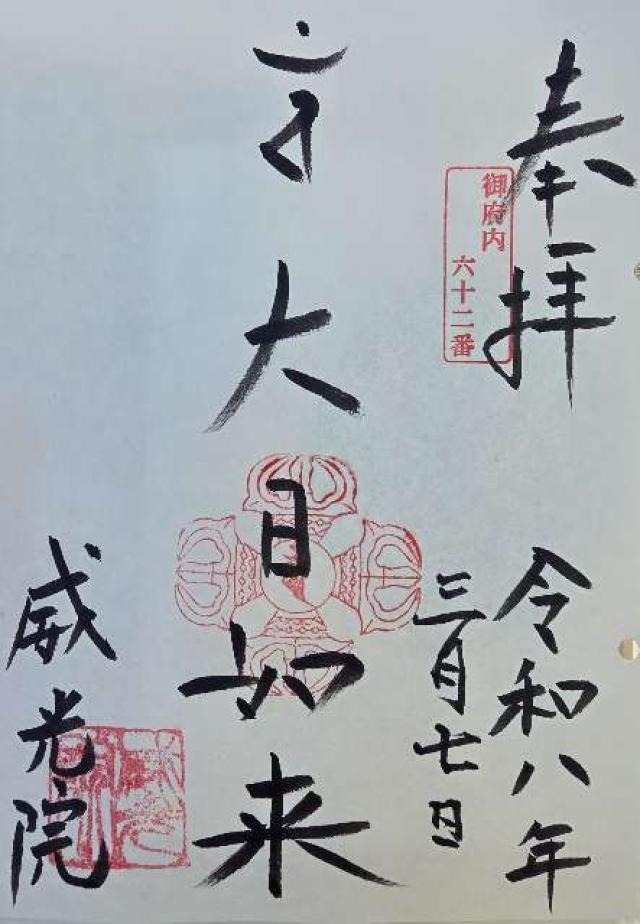 奉拝
御府内
六十二番
令和八年
三月七日
大日如来
威光院